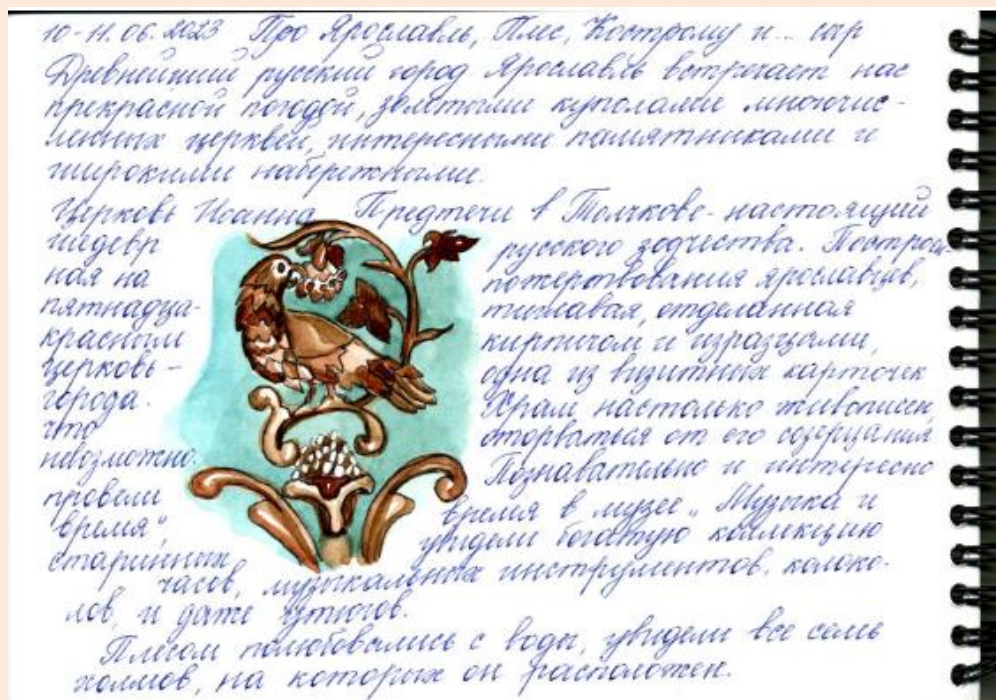 10-11.06.2023 Про Ярославль, Плес, Кострому и... сыр
Древнейший русский город Ярославль встречает нас
прекрасной погодой, золотыми куполами многочис-
ленных церквей, интересными памятниками и
широкими набережными.
Церковь Иоанна Предтечи в Толчкове - настоящий
шедевр русского зодчества. Построен-
ная на пожертвования ярославцев,
пятнадца- тиглавая, отделанная
красным кирпичом и изразцами,
церковь - одна из визитных карточек
города. Храм настолько живописен,
что оторваться от его созерцания
невозможно. Познавательно и интересно
провели время в музее „Музыка и
время", увидели богатую коллекцию
старинных часов, музыкальных инструментов, колоко-
лов, и даже утюгов.
Плёсом полюбовались с воды, увидели все семь
холмов, на которых он расположен.